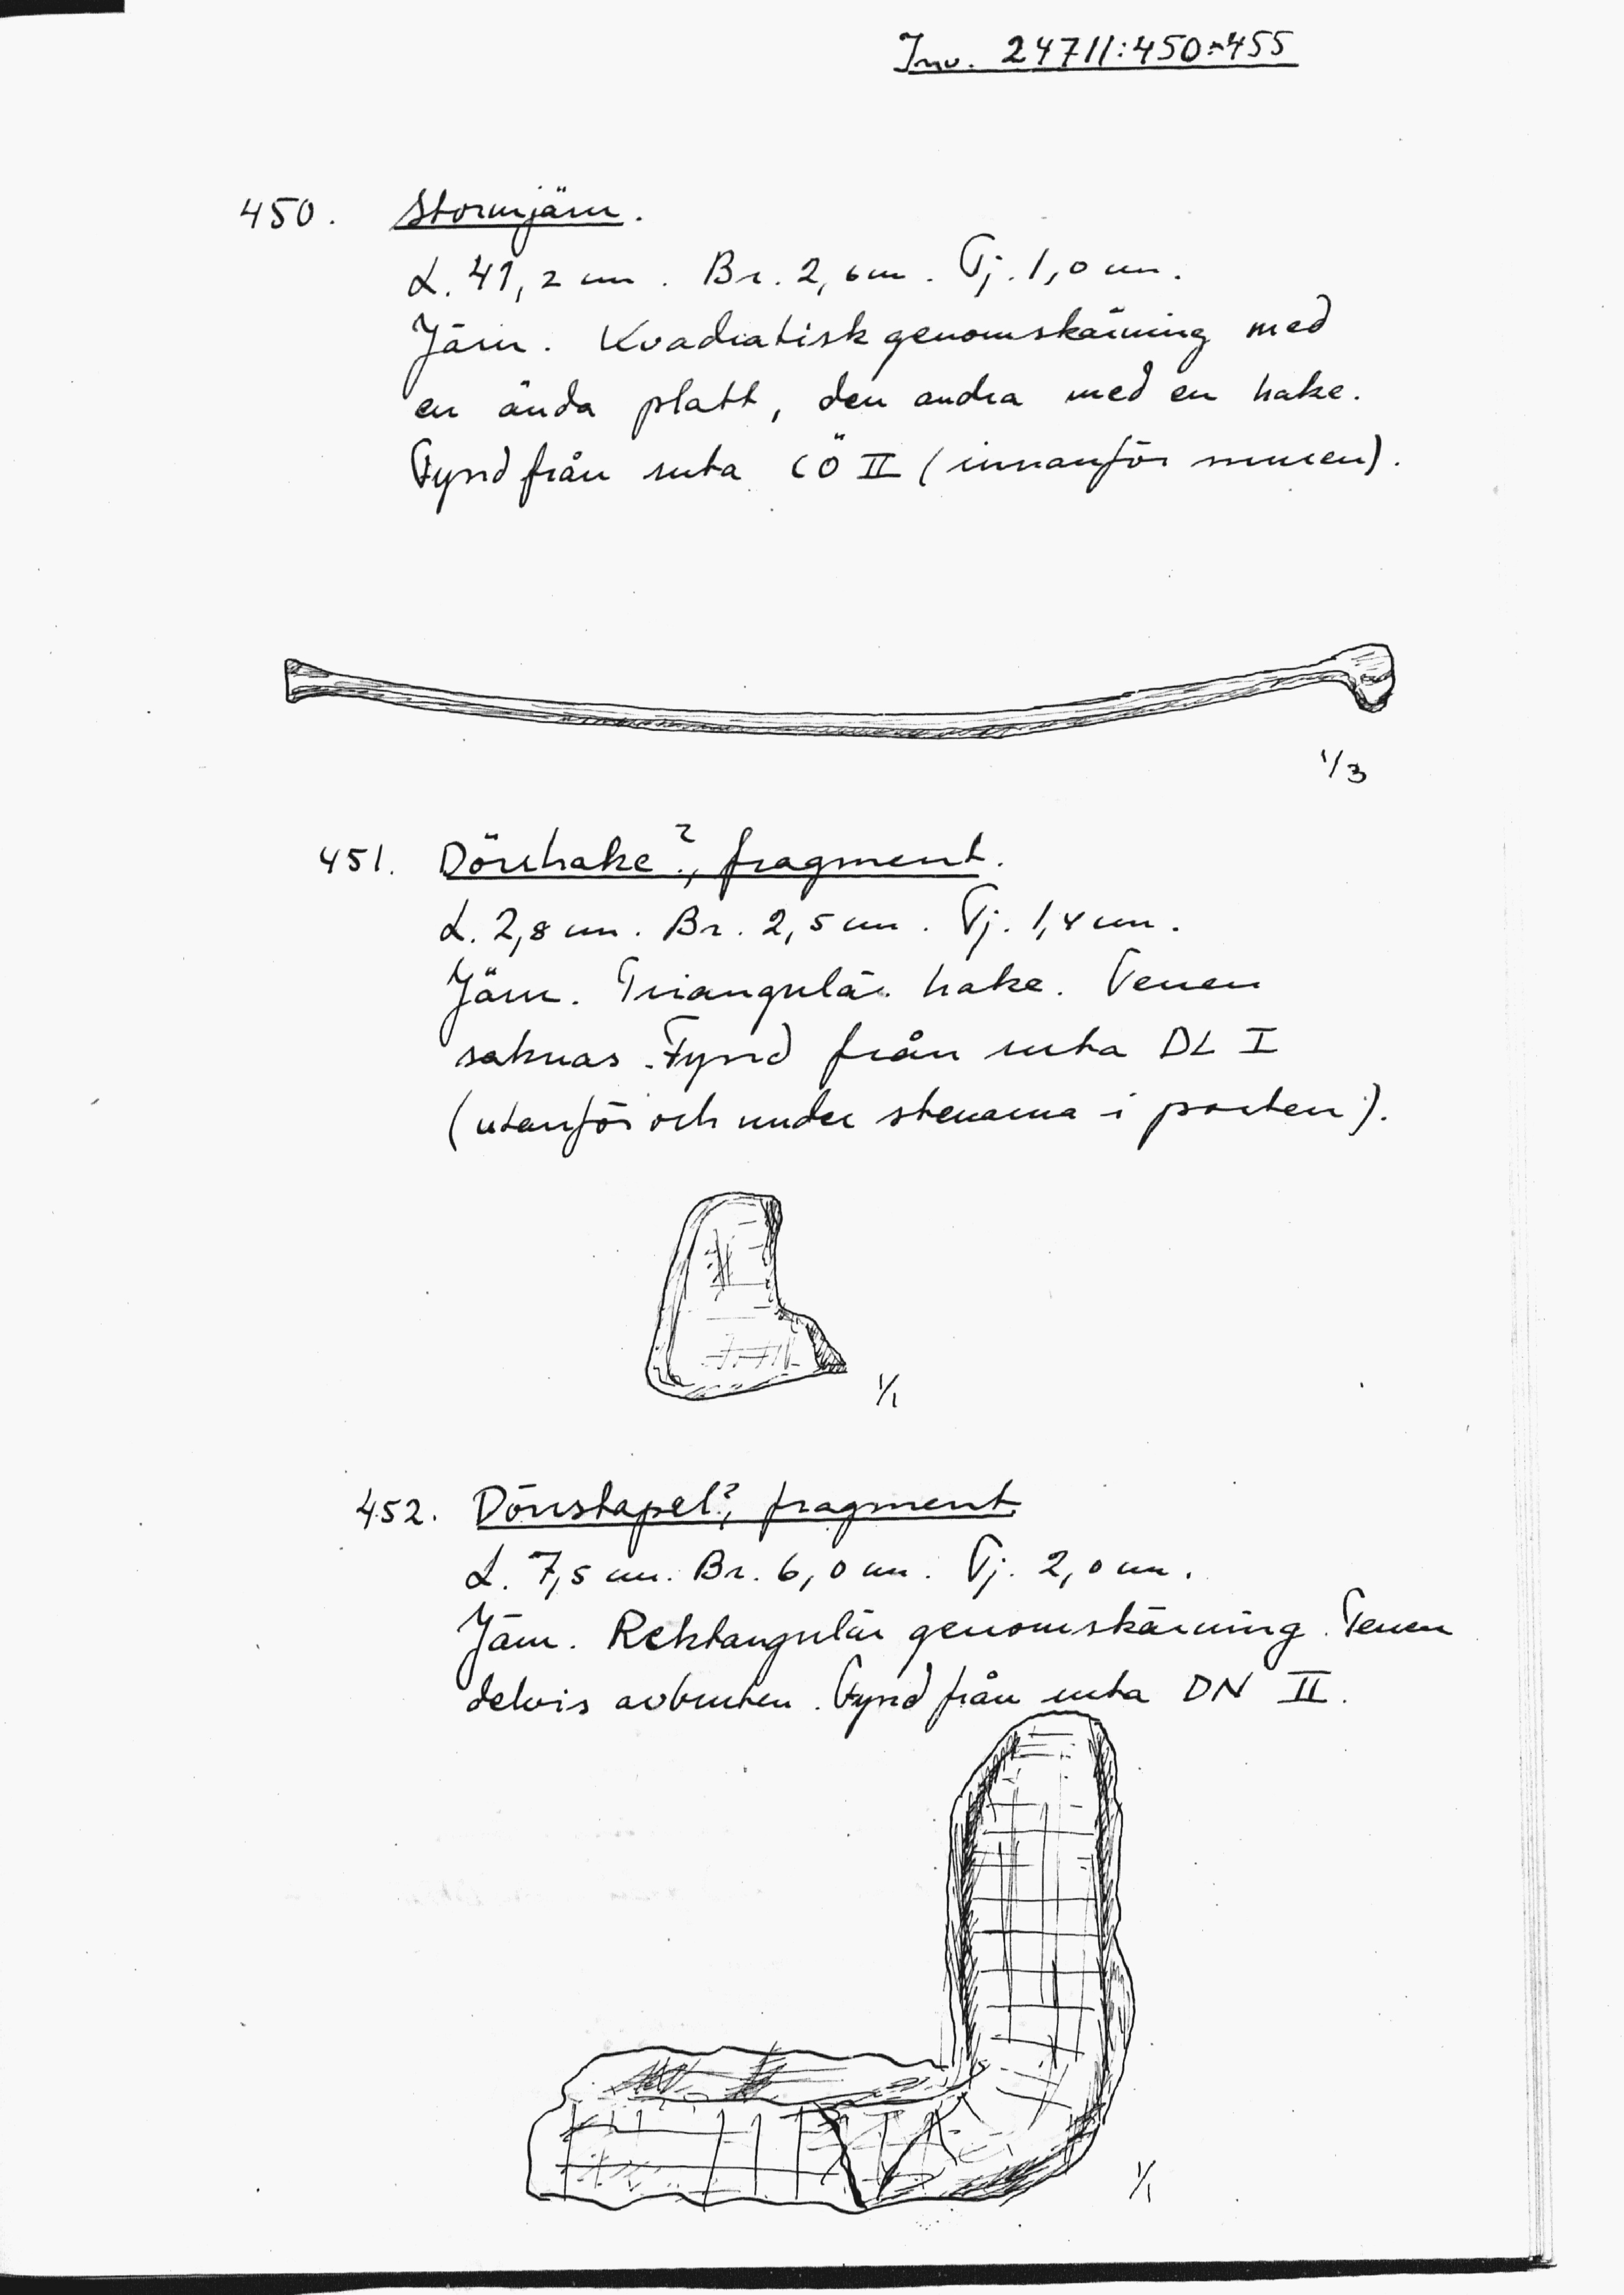 Inv. 24711:450-455
450. Stormjärn.
L. 41,2 cm. Br. 2,6 cm. Tj. 1,0 cm.
Järn. Kvadratisk genomskärning med
en ända platt, den andra med en hake.
Fynd från ruta CÖ II (innanför muren).
1/3
451. Dörrhake?, fragment.
L. 2,8 cm. Br. 2,5 cm. Tj. 1,4 cm.
Järn. Triangulär hake. Tenen
saknas. Fynd från ruta DL I
(utanför och under stenarna i porten).
1/1
452. Dörrstapel?, fragment
L. 7,5 cm. Br. 6,0 cm. Tj. 2,0 cm.
Järn. Rektangulär genomskärning. Tenen
delvis avbruten. Fynd från ruta DN II.
1/1